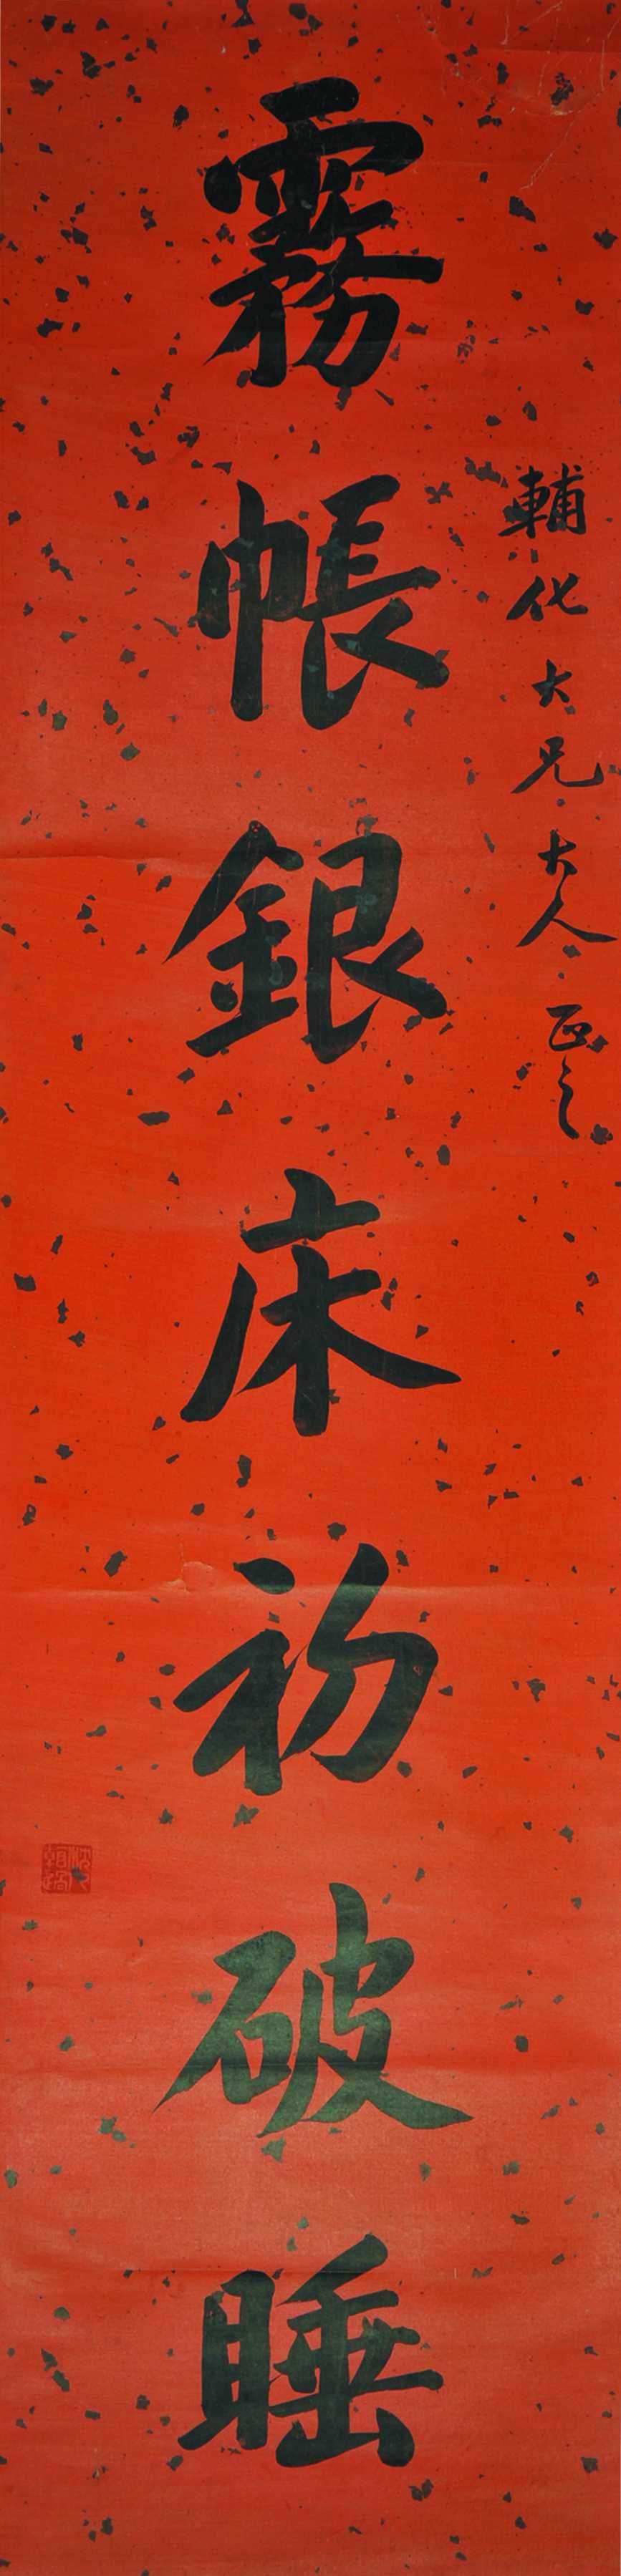 輔化大兄大人正之
霧帳銀床初破睡